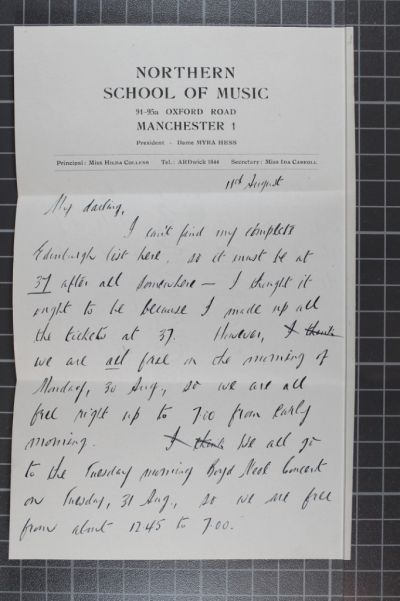 NORTHERN
SCHOOL OF MUSIC
91-95a OXFORD ROAD
MANCHESTER 1
President - Dame MYRA HESS
Principal: Miss HILDA COLLENS Tel.: ARDwick 1844 Secretary: Miss IDA CARROLL
11th August
My darling,
I can't find my complete
Edinburgh list here, so it must be at
37 after all somewhere — I thought it
ought to be because I made up all
the tickets at 37. However, I think
we are all free on the morning of
Monday, 30 Aug., so we are all
free right up to 7.00 from early
morning. I think We all go
to the Tuesday morning Boyd Neel Concert
on Tuesday, 31 Aug., so we are free
from about 12.45 to 7.00.